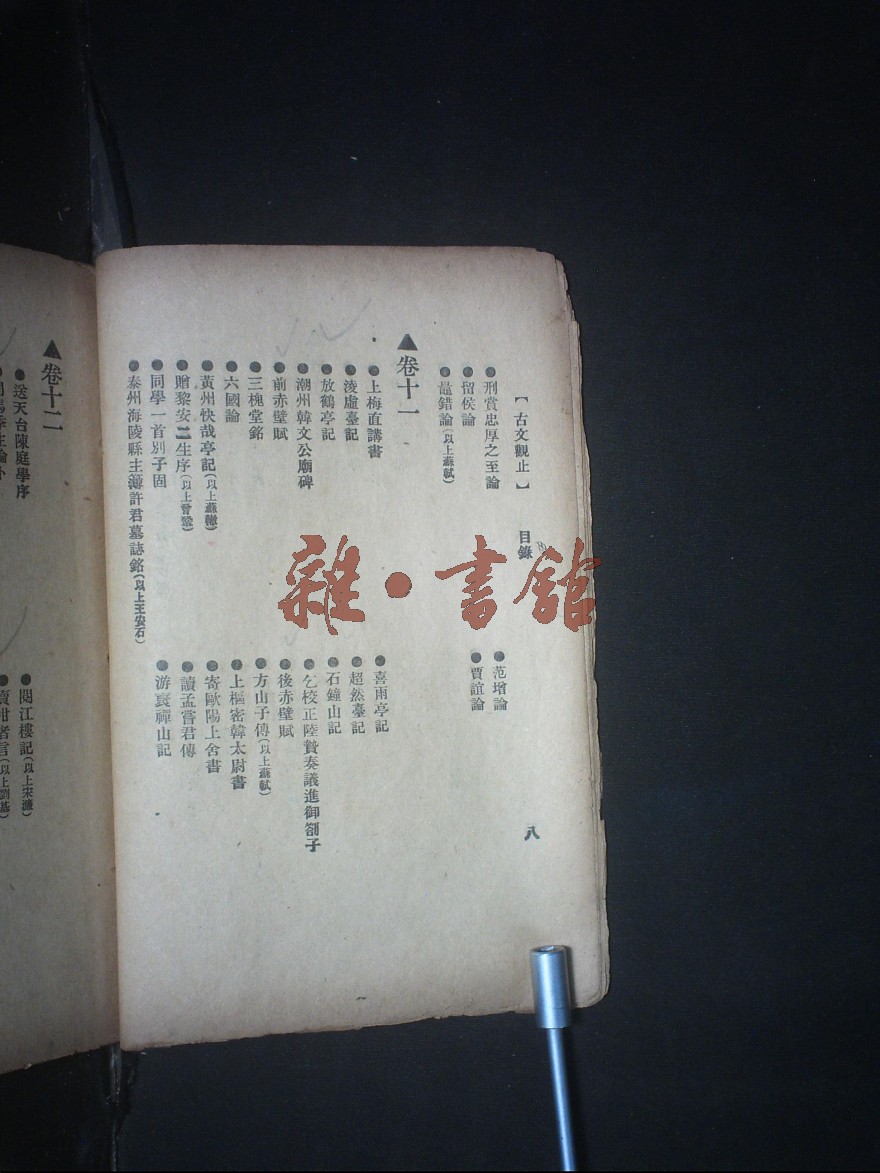 【古文觀止】 目錄 八
●刑賞忠厚之至論 ●范增論
●留侯論 ●賈誼論
●鼂錯論(以上蘇軾)
▲卷十一
●上梅直講書 ●喜雨亭記
●淩虛臺記 ●超然臺記
●放鶴亭記 ●石鐘山記
●潮州韓文公廟碑 ●乞校正陸贄奏議進御劄子
●前赤壁賦 ●後赤壁賦
●三槐堂銘 ●方山子傳(以上蘇軾)
●六國論 ●上樞密韓太尉書
●黃州快哉亭記(以上蘇轍) ●寄歐陽上舍書
●贈黎安二生序(以上曾鞏) ●讀孟嘗君傳
●同學一首別子固 ●游褒禪山記
●泰州海陵縣主簿許君墓誌銘(以上王安石)
▲卷十二
●送天台陳庭學序 ●閱江樓記(以上宋濂)
●司馬季主論卜 ●賣柑者言(以上劉基)
雜·書館